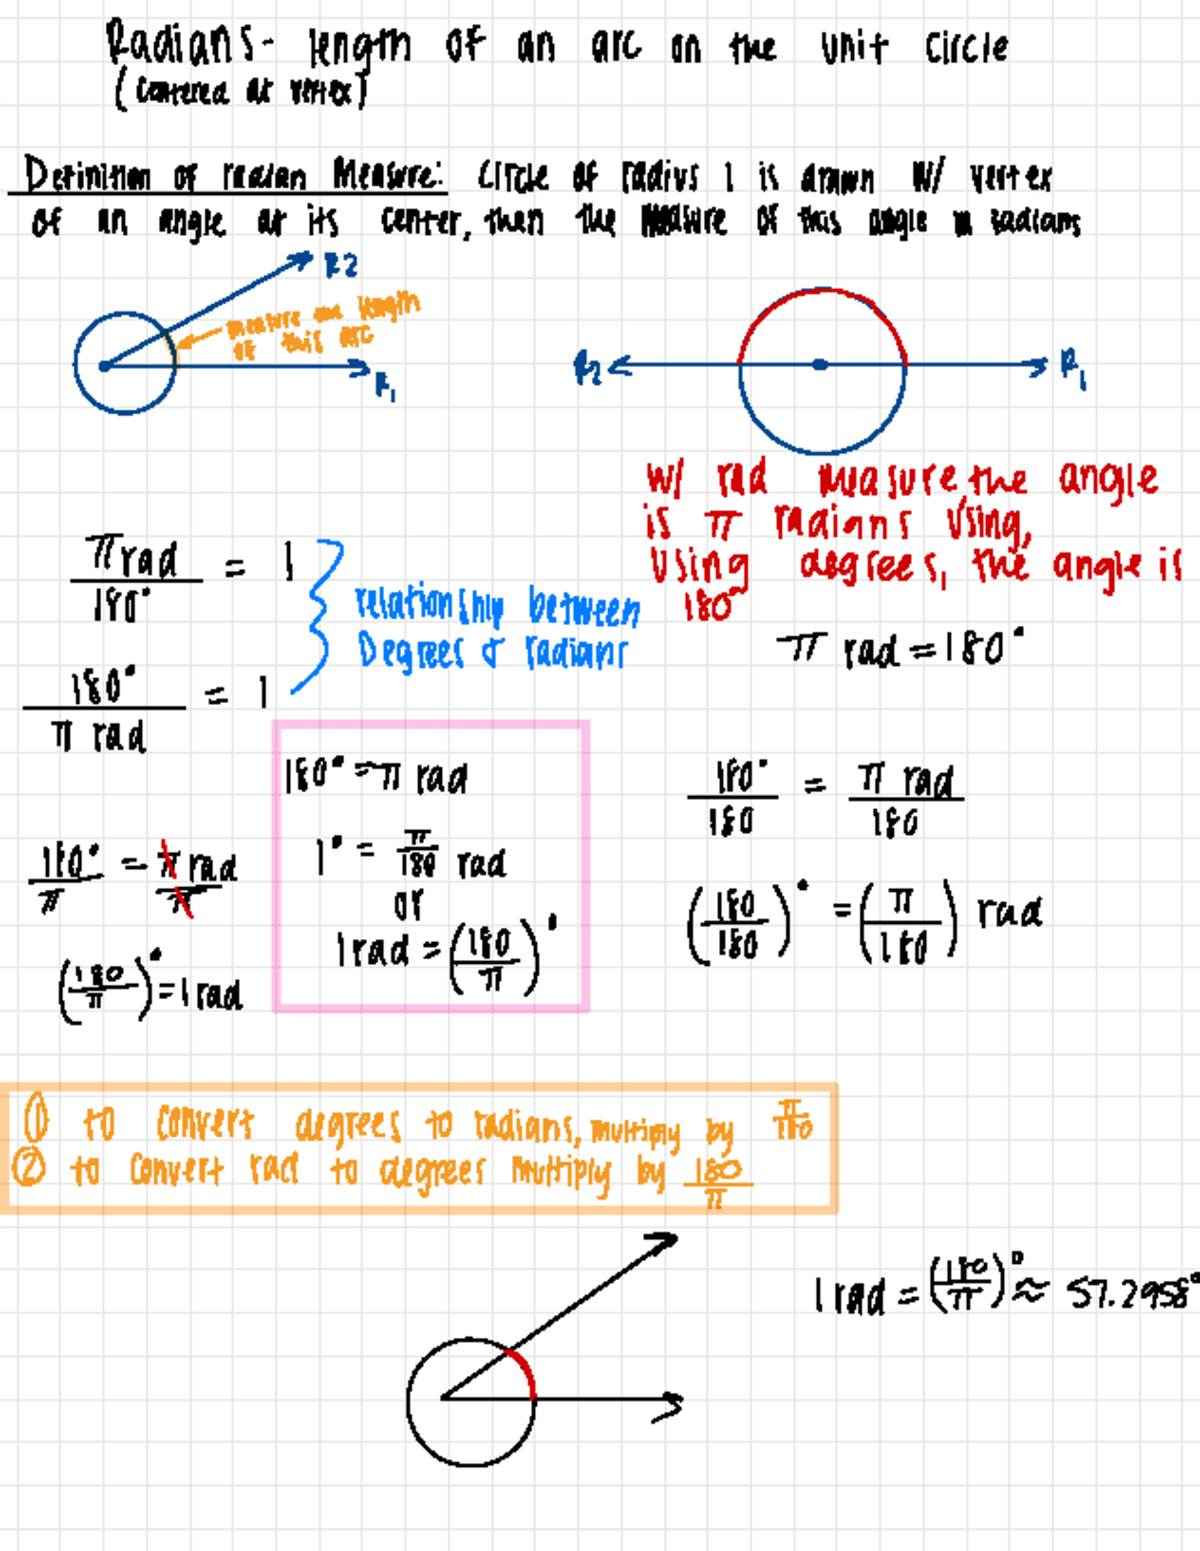 Radians - length of an arc on the unit circle
(Centered at vertex)
Definition of radian Measure: Circle of radius 1 is drawn w/ vertex
of an angle at its center, then the measure of this angle in radians
R2
measure the length
of this arc
R₁
R2
R₁
w/ rad measure, the angle
is π radians Using,
Using degrees, the angle is
180°
π rad = 180°
π rad / 180° = 1
180° / π rad = 1
relationship between
Degrees & radians
180° = π rad
1° = π/180 rad
or
1 rad = (180/π)°
180°/π = π rad/π
(180/π)° = 1 rad
180°/180 = π rad/180
(180/180)° = (π/180) rad
① to convert degrees to radians, multiply by π/180
② to convert rad to degrees multiply by 180/π
1 rad = (180/π)° ≈ 57.2958°